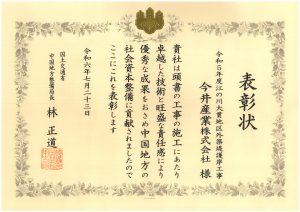 表彰状
令和5年度江の川大貫地区外築堤護岸工事
今井産業株式会社 様
貴社は頭書の工事の施工にあたり
卓越した技術と旺盛な責任感により
優秀な成果をおさめ中国地方の
社会資本整備に貢献されましたので
ここにこれを表彰します
令和六年七月二十三日
国土交通省
中国地方整備局長
林 正道